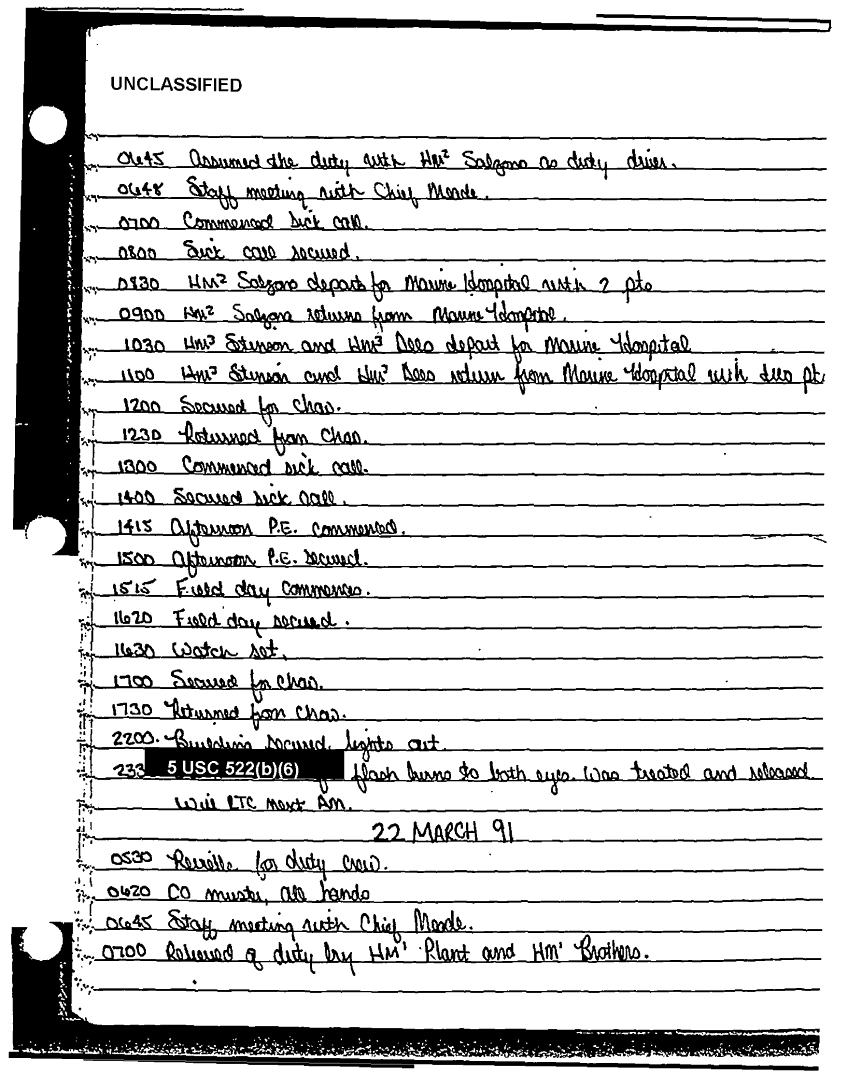 UNCLASSIFIED
0645 Assumed the duty with HM² Salzono as duty driver.
0648 Staff meeting with Chief Meade.
0700 Commenced sick call.
0800 Sick call secured.
0830 HM² Salzono depart for Marine Hospital with 2 pts
0900 HM² Salzono returns from Marine Hospital.
1030 HM³ Stinson and HM³ Dees depart for Marine Hospital
1100 HM³ Stinson and HM³ Dees return from Marine Hospital with two pt
1200 Secured for Chao.
1230 Returned from Chao.
1300 Commenced sick call.
1400 Secured sick call.
1415 Afternoon P.E. commenced.
1500 Afternoon P.E. secured.
1515 Field day commences.
1620 Field day secured.
1630 Watch set.
1700 Secured for Chao.
1730 Returned from Chao.
2200. Building secured, lights out.
233 5 USC 522(b)(6) flash burns to both eyes. Was treated and released.
Will RTC next AM.
22 MARCH 91
0530 Reveille for duty crew.
0620 CO muster, all hands
0645 Staff meeting with Chief Meade.
0700 Relieved of duty by HM¹ Plant and HM¹ Brothers.